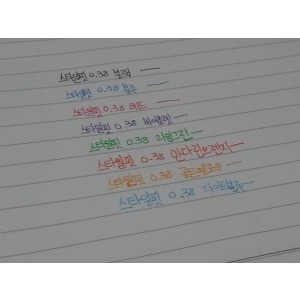 스타일핏 0.38 블랙
스타일핏 0.38 블루
스타일핏 0.38 레드
스타일핏 0.38 바이올렛
스타일핏 0.38 라임그린
스타일핏 0.38 만다린오렌지
스타일핏 0.38 골든옐로우
스타일핏 0.38 라이트블루